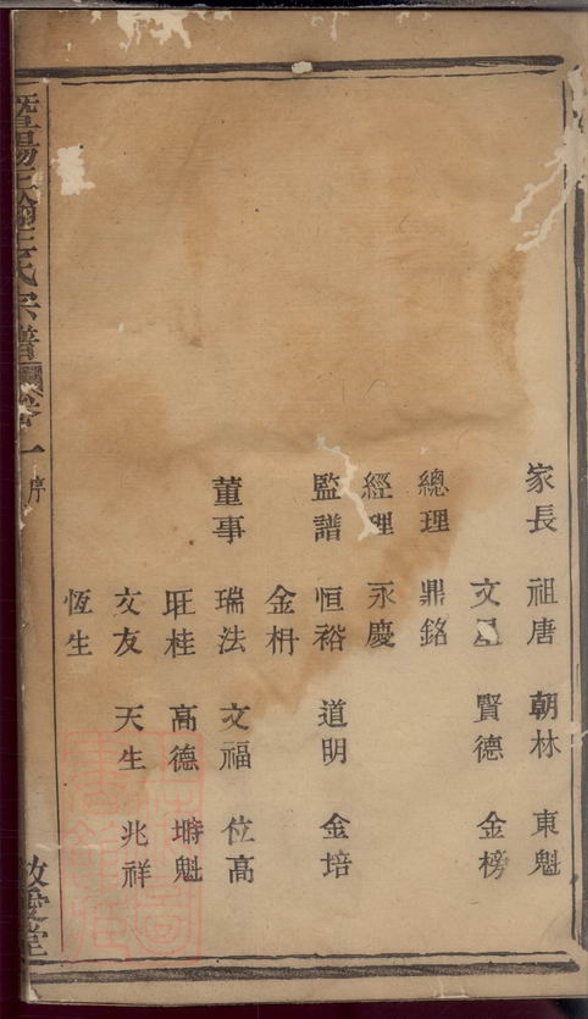 家長 祖唐 朝林 東魁
文 賢德 金榜
總理 鼎銘
經理 永慶
監譜 恒裕 道明 金培
金枬
董事 瑞法 文福 位高
旺桂 高德 魁
文友 天生 兆祥
恆生
氏宗譜 卷一 序
敬愛堂